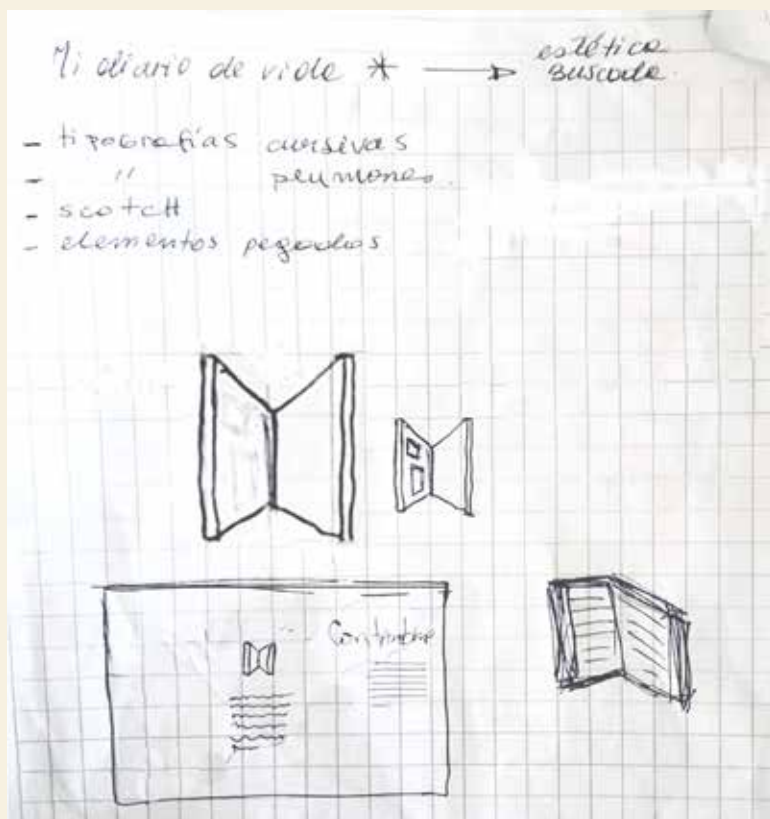 Mi diario de vida * → estética
buscada.
- tipografías cursivas
- " plumones.
- scotch
- elementos pegados